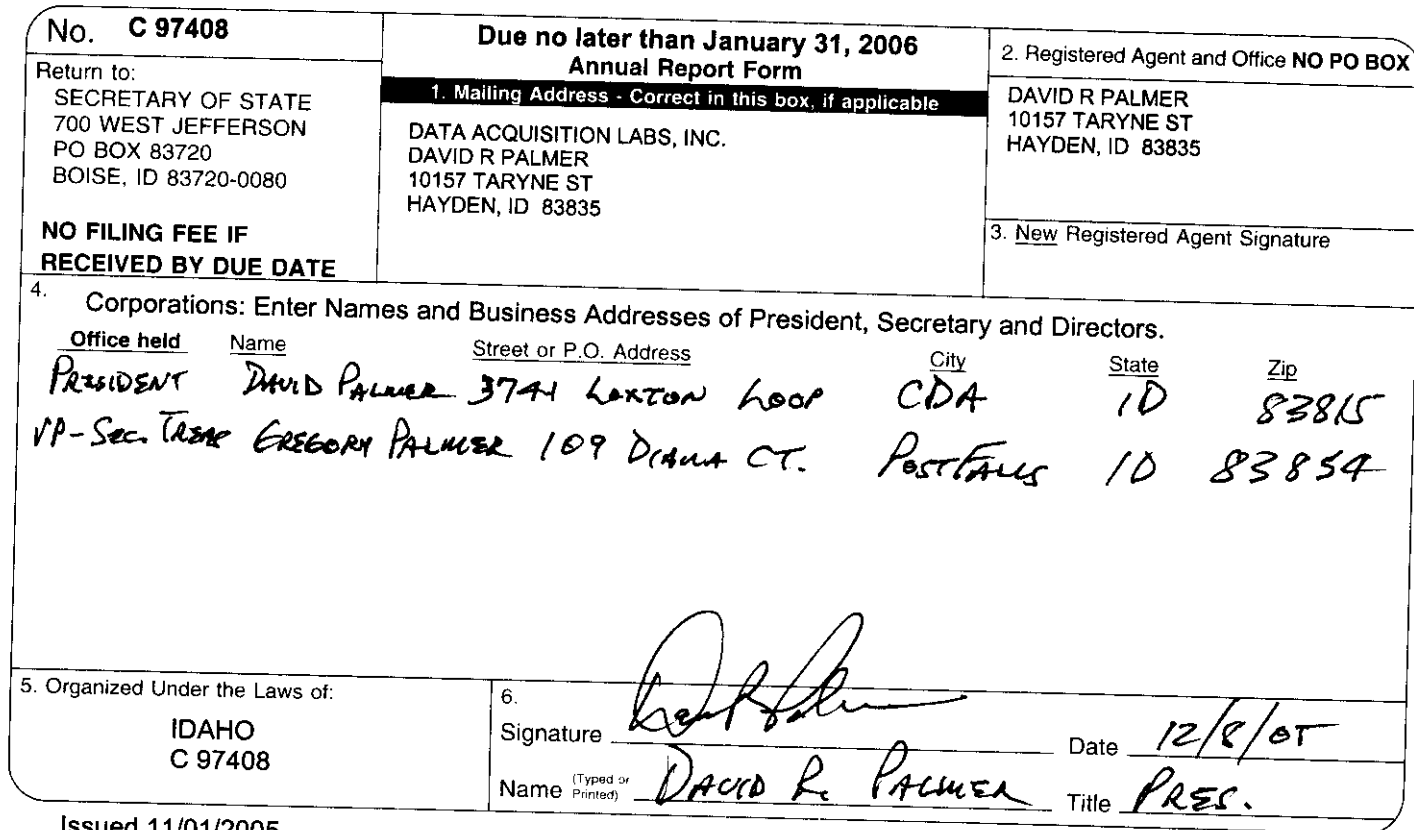 No. C 97408
Return to:
SECRETARY OF STATE
700 WEST JEFFERSON
PO BOX 83720
BOISE, ID 83720-0080
NO FILING FEE IF
RECEIVED BY DUE DATE
Due no later than January 31, 2006
Annual Report Form
1. Mailing Address - Correct in this box, if applicable
DATA ACQUISITION LABS, INC.
DAVID R PALMER
10157 TARYNE ST
HAYDEN, ID 83835
2. Registered Agent and Office NO PO BOX
DAVID R PALMER
10157 TARYNE ST
HAYDEN, ID 83835
3. New Registered Agent Signature
4. Corporations: Enter Names and Business Addresses of President, Secretary and Directors.
Office held Name Street or P.O. Address City State Zip
PRESIDENT DAVID PALMER 3741 LOXTON LOOP CDA ID 83815
VP-SEC. TREAS GREGORY PALMER 109 DIANA CT. POST FALLS ID 83854
5. Organized Under the Laws of:
IDAHO
C 97408
6.
Signature Date 12/8/05
Name (Typed or Printed) DAVID R. PALMER Title PRES.
Issued 11/01/2005